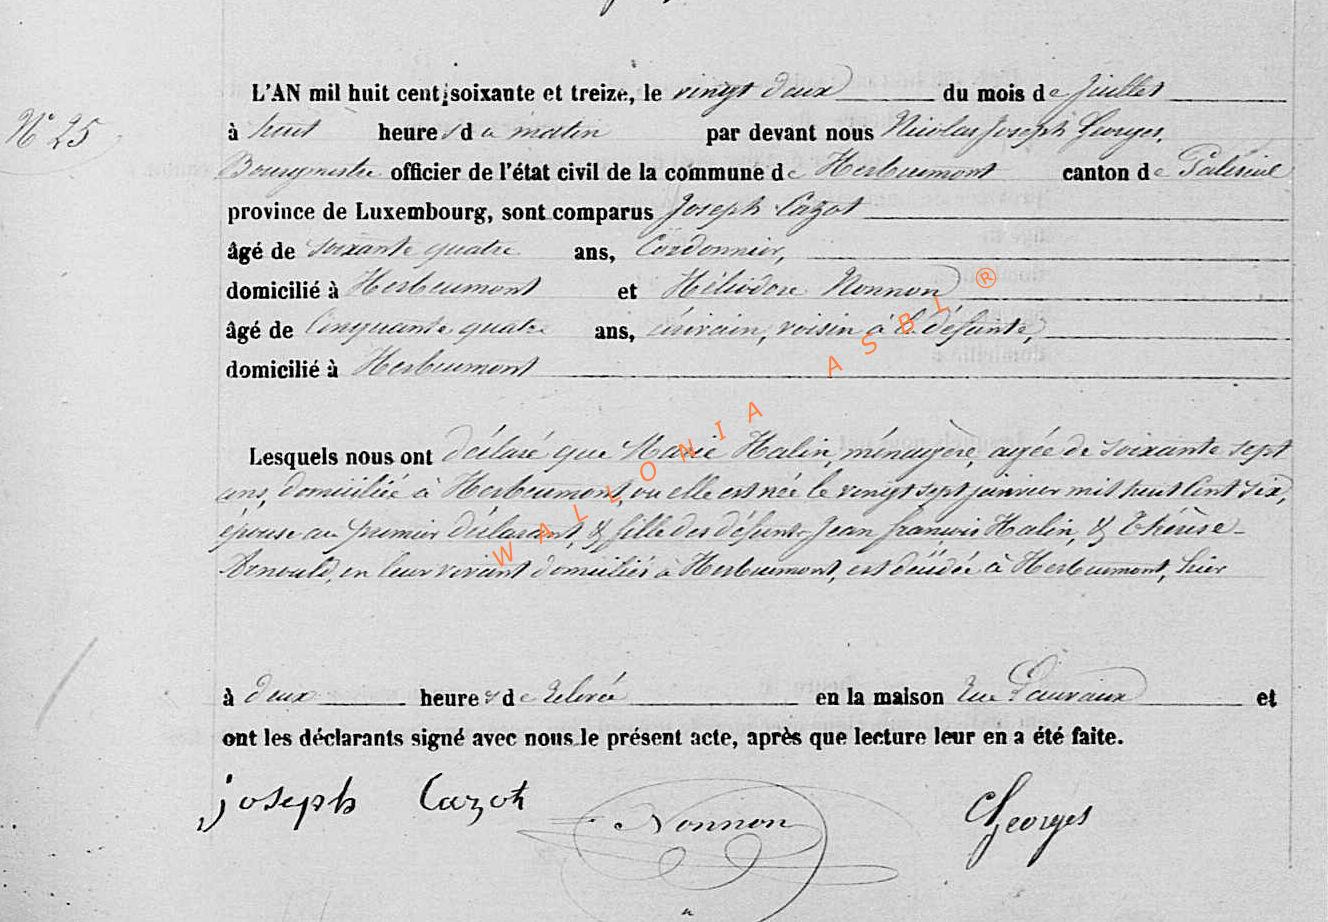 L'AN mil huit cent soixante et treize, le vingt deux du mois de Juillet
N° 25
à huit heures du matin par devant nous Nicolas Joseph Georges,
Bourgmestre officier de l'état civil de la commune de Herbeumont canton de Paliseul
province de Luxembourg, sont comparus Joseph Cazot
âgé de soixante quatre ans, Cordonnier,
domicilié à Herbeumont et Héliodore Nonnon
âgé de Cinquante quatre ans, écrivain, voisin à la défunte,
domicilié à Herbeumont
Lesquels nous ont déclaré que Marie Halin, ménagère, agée de soixante sept
ans, domiciliée à Herbeumont, ou elle est née le vingt sept janvier mil huit Cent six,
épouse au premier déclarant, & fille des défunts Jean françois Halin, & Thérèse
Arnould, en leur vivant domiciliés à Herbeumont, est décédée à Herbeumont, hier
à deux heures de relevée en la maison Rue Lauvaux et
ont les déclarants signé avec nous le présent acte, après que lecture leur en a été faite.
joseph Cazot Nonnon Georges
WALLONIA ASBL ®